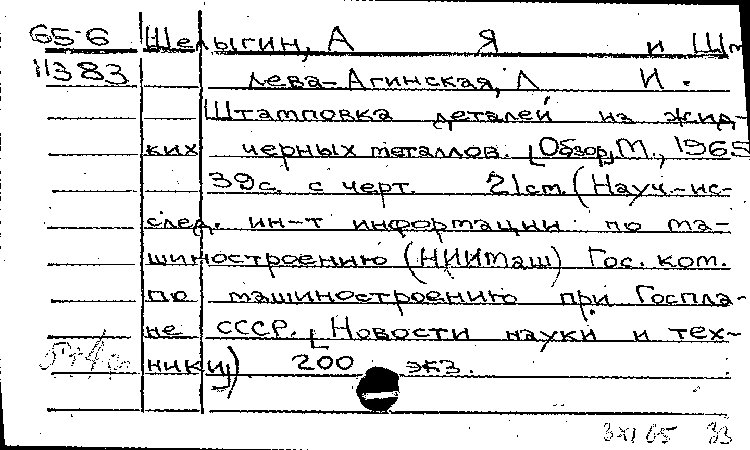 65-6 Шелыгин, А Я и Шм
11383 лева-Агинская, Л И.
Штамповка деталей из жид-
ких черных металлов. [Обзор] М., 1965
39 с. с черт. 21 cm. (Науч.-ис-
след. ин-т информации по ма-
шиностроению (НИИмаш) Гос. ком.
по машиностроению при Госпла-
не СССР. [Новости науки и тех-
ники]) 200 экз.
3 XI 65 33